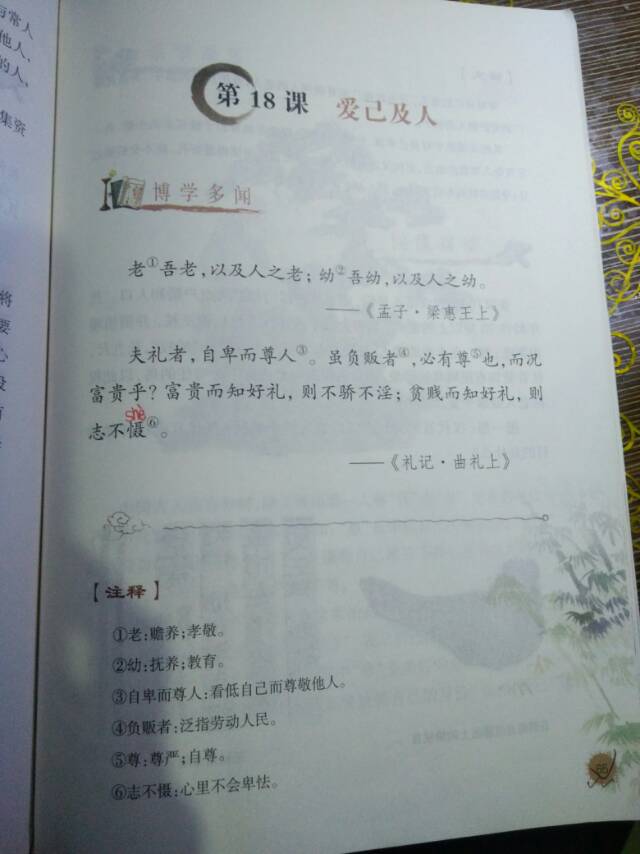 与常人
他人,
的人,
集资
将
要
心
第18课 爱己及人
博学多闻
老①吾老,以及人之老;幼②吾幼,以及人之幼。
——《孟子·梁惠王上》
夫礼者,自卑而尊人③。虽负贩者④,必有尊⑤也,而况
富贵乎?富贵而知好礼,则不骄不淫;贫贱而知好礼,则
shè
志不慑⑥。
——《礼记·曲礼上》
【注释】
①老:赡养;孝敬。
②幼:抚养;教育。
③自卑而尊人:看低自己而尊敬他人。
④负贩者:泛指劳动人民。
⑤尊:尊严;自尊。
⑥志不慑:心里不会卑怯。